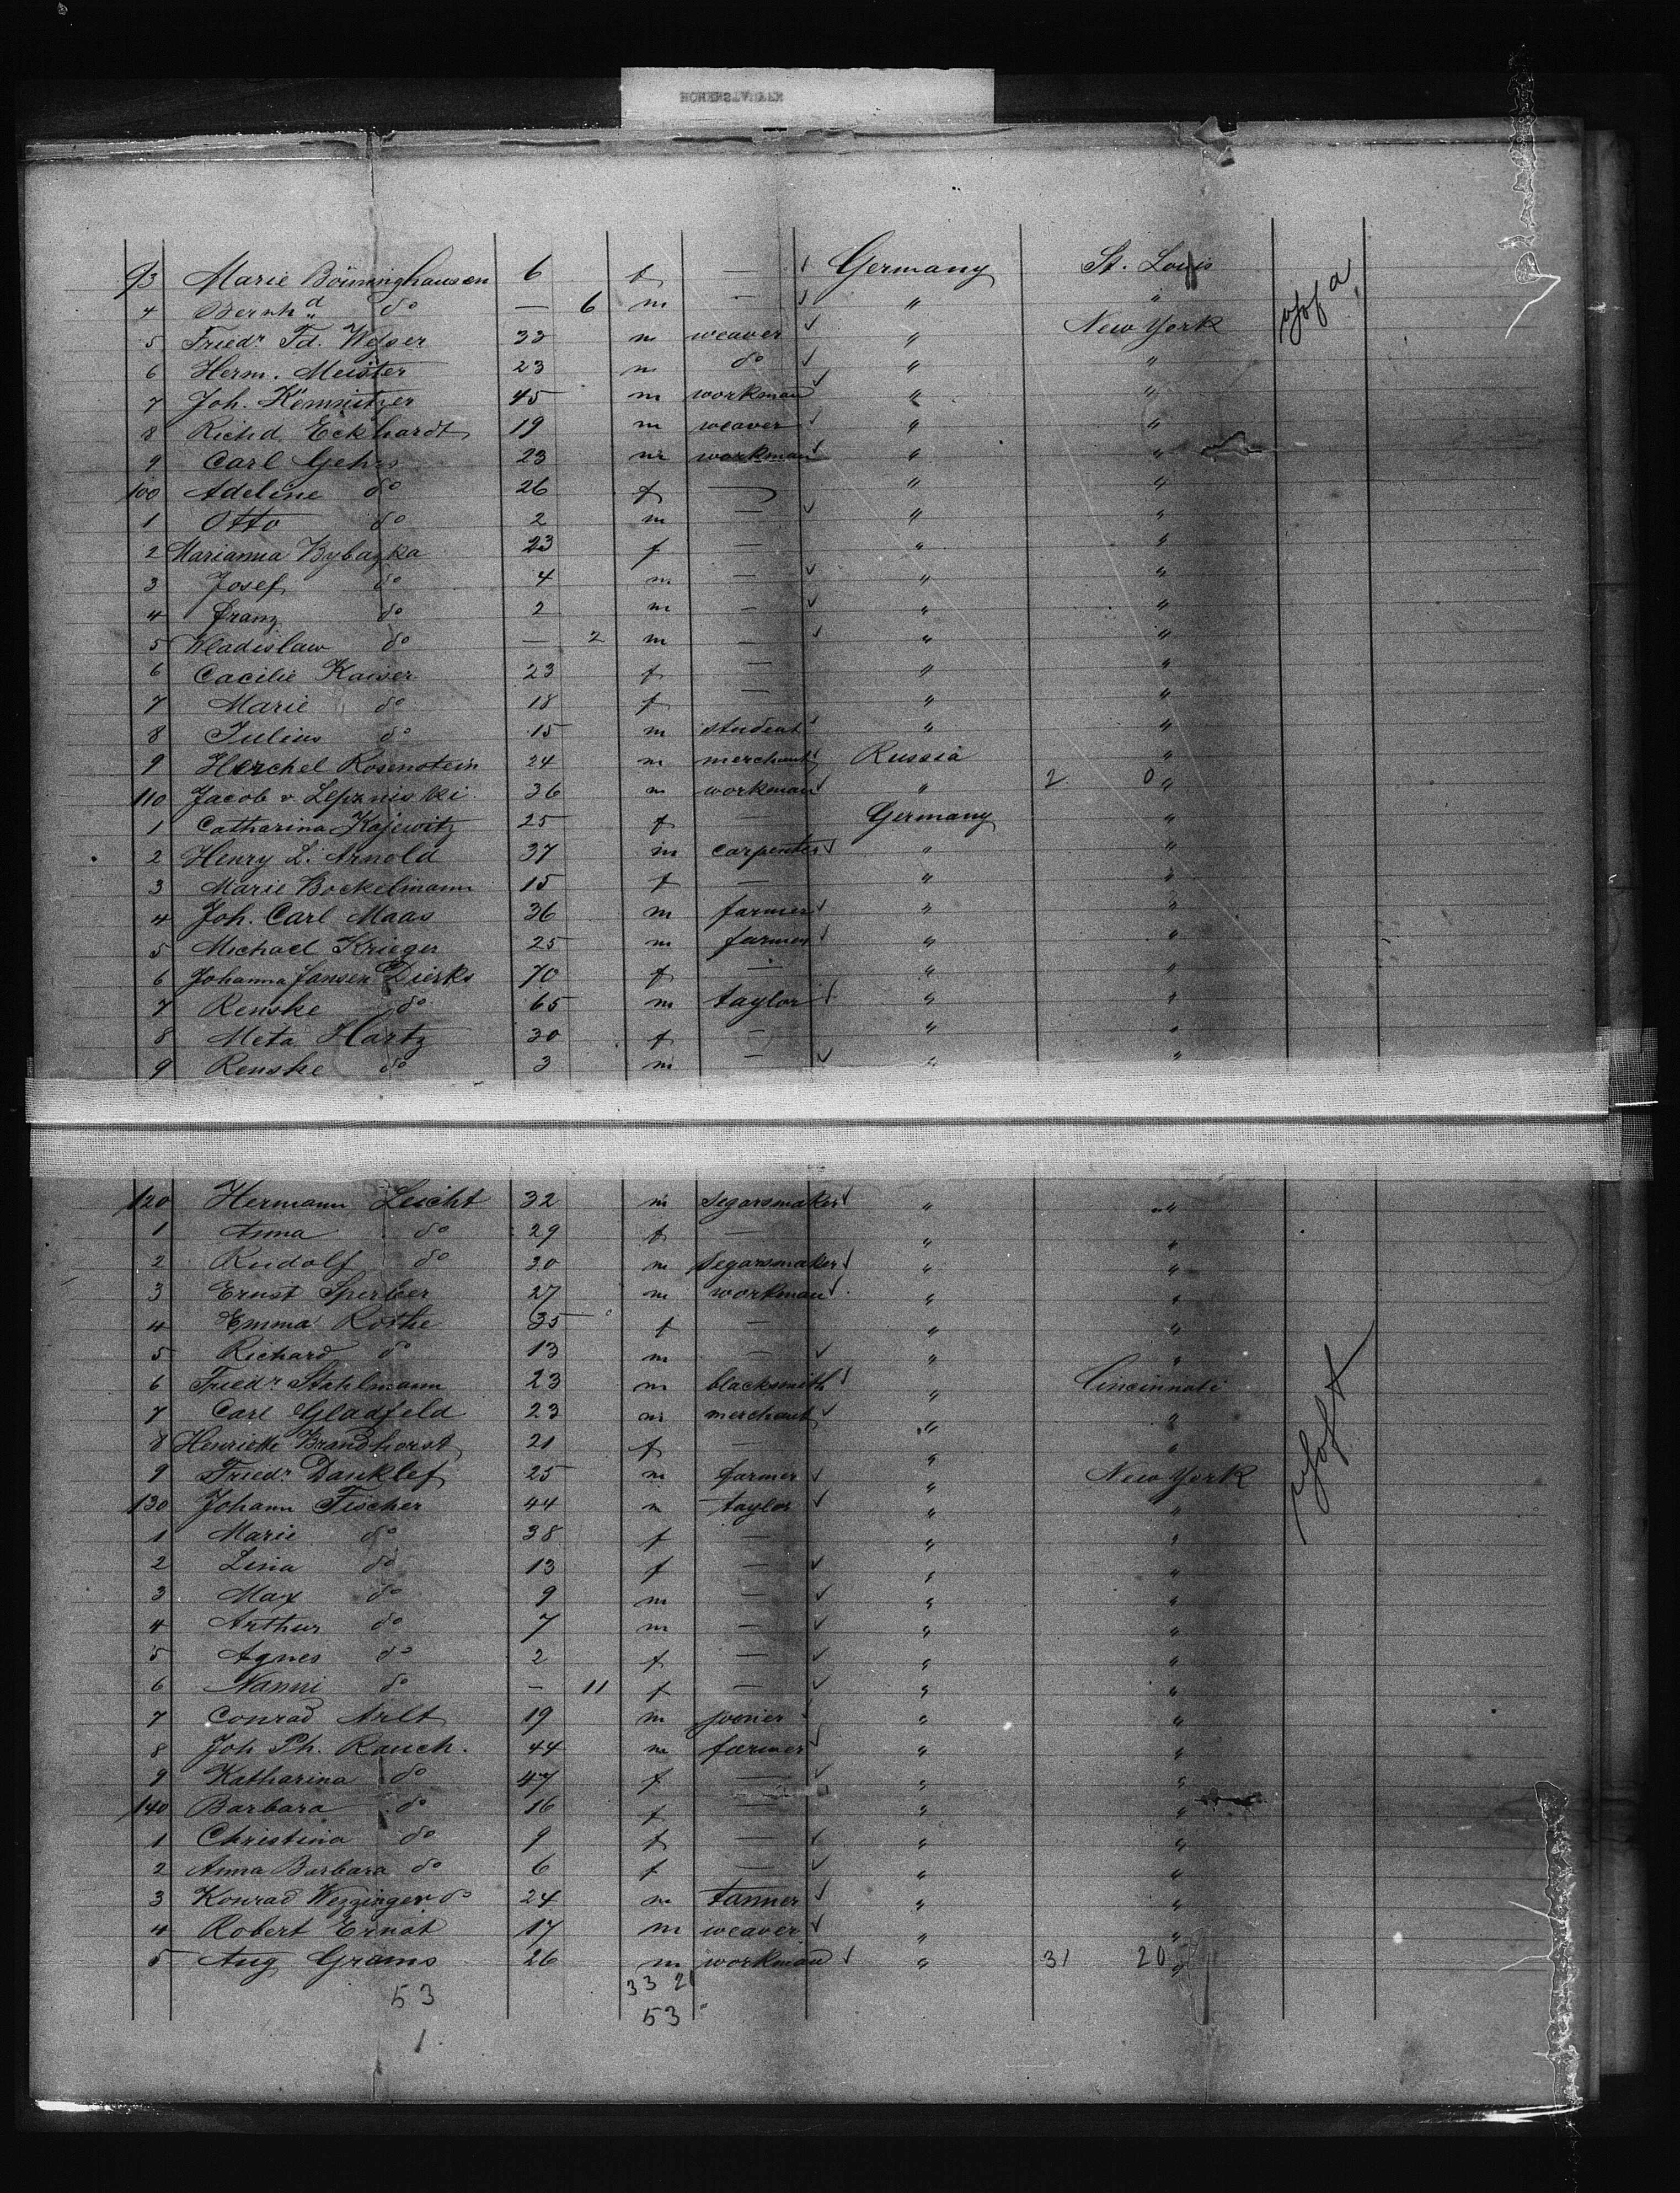 HOHENSTAUFEN
93 Marie Bönninghausen 6 f — ✓ Germany St. Louis
4 Bernhd do — 6 m — ✓ " "
5 Friedr Fd. Weser 33 m weaver ✓ " New York
6 Herm. Meister 23 m do ✓ " "
7 Joh. Kemnitzer 45 m workman ✓ " "
8 Richd. Eckhardt 19 m weaver ✓ " "
9 Carl Gehrs 23 m workman ✓ " "
100 Adeline do 26 f — " "
1 Otto do 2 m — ✓ " "
2 Marianna Bybazka 23 f — " "
3 Josef do 4 m — ✓ " "
4 Franz do 2 m — ✓ " "
5 Wladislaw do — 2 m — ✓ " "
6 Cacilie Kaiser 23 f — " "
7 Marie do 18 f — " "
8 Julius do 15 m student ✓ " "
9 Herchel Rosenstein 24 m merchant ✓ Russia "
110 Jacob v Lepzniski 36 m workman ✓ " 2 0 "
1 Catharina Kajewitz 25 f — Germany "
2 Henry L. Arnold 37 m carpenter ✓ " "
3 Marie Bockelmann 15 f — " "
4 Joh. Carl Maas 36 m farmer ✓ " "
5 Michael Krieger 25 m farmer ✓ " "
6 Johanna Jansen Dierks 70 f — " "
7 Renske do 65 m taylor ✓ " "
8 Meta Hartz 30 f — " "
9 Renske do 3 m — ✓ " "
120 Hermann Leicht 32 m segarsmaker ✓ " "
1 Anna do 29 f — " "
2 Rudolf do 30 m segarsmaker ✓ " "
3 Ernst Sperber 27 m workman ✓ " "
4 Emma Rothe 35 f — " "
5 Richard do 13 m — ✓ " "
6 Friedr Stahlmann 23 m blacksmith ✓ " Cincinnati
7 Carl Gladfeld 23 m merchant ✓ " "
8 Henriette Brandhorst 21 f — " "
9 Friedr. Danklef 25 m farmer ✓ " New York
130 Johann Fischer 44 m taylor ✓ " "
1 Marie do 38 f — " "
2 Lina do 13 f — ✓ " "
3 Max do 9 m — ✓ " "
4 Arthur do 7 m — ✓ " "
5 Agnes do 2 f — ✓ " "
6 Nanni do — 11 f — ✓ " "
7 Conrad Arlt 19 m joinier ✓ " "
8 Joh Ph. Rauch. 44 m farmer ✓ " "
9 Katharina do 47 f — ✓ " "
140 Barbara do 16 f — " "
1 Christina do 9 f — ✓ " "
2 Anna Barbara do 6 f — ✓ " "
3 Konrad Wezzinger do 24 m tanner ✓ " "
4 Robert Ernst 17 m weaver ✓ " "
5 Aug Grams 26 m workman ✓ " 31 20 "
53 33 21
53
1